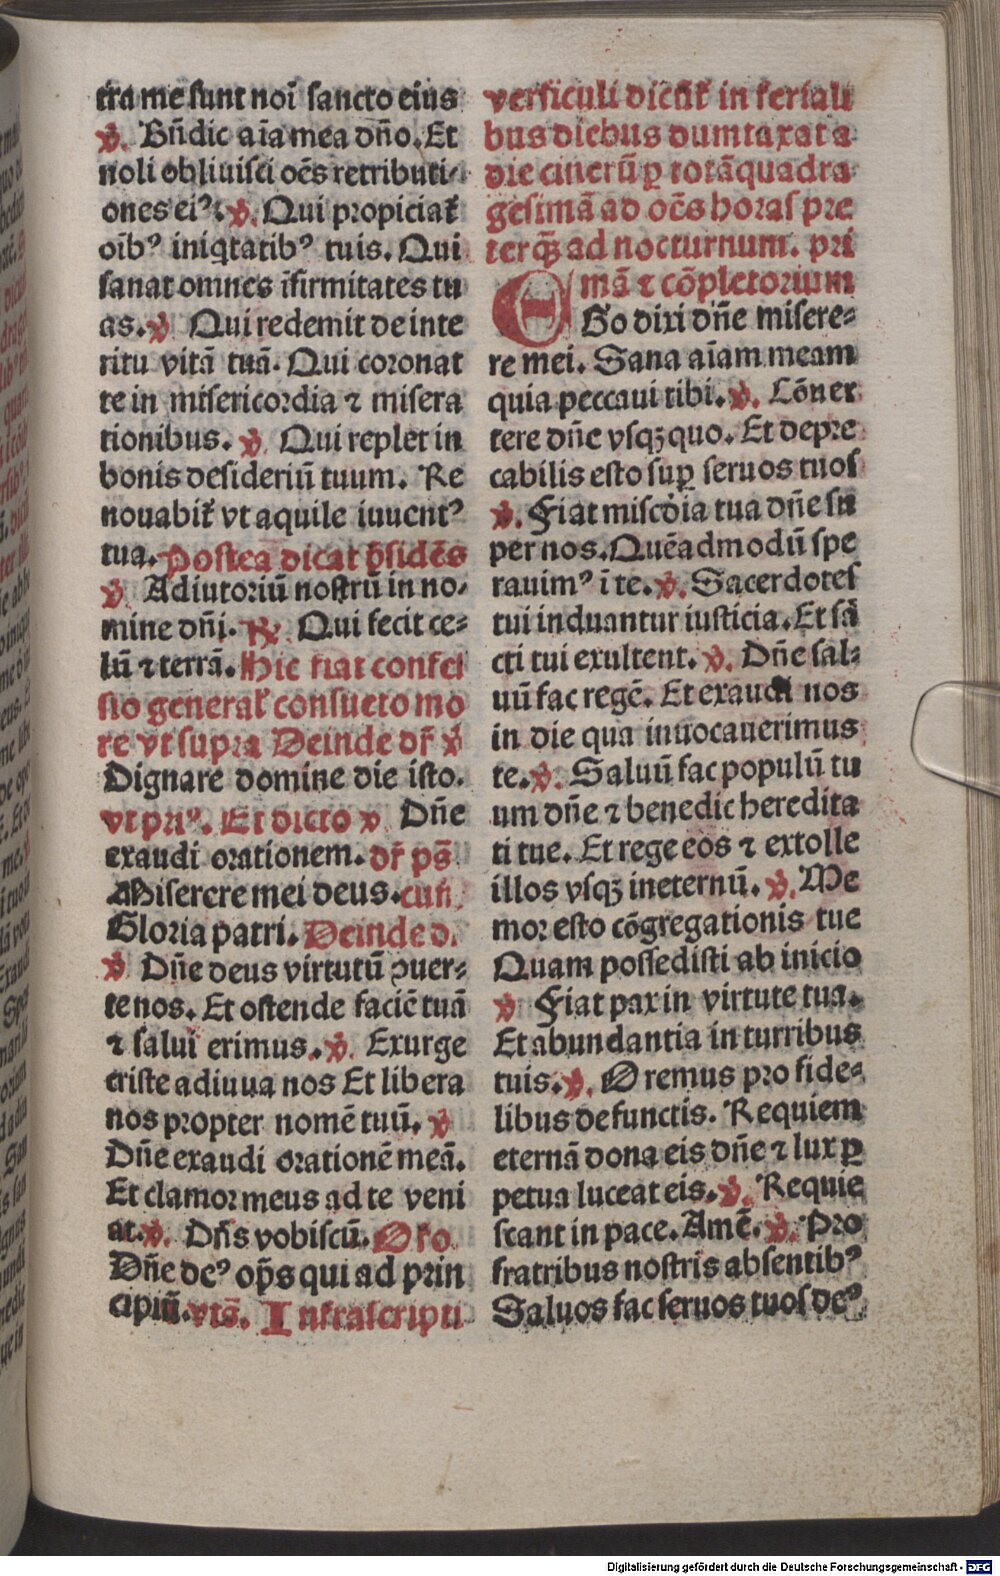 tra me sunt noī sancto eius
℣. Bn̄dic aīa mea dn̄o. Et
noli obliuisci oēs retributi⸗
ones eiꝰ. ℣. Qui propiciat᷑
oībꝰ iniq̇tatibꝰ tuis. Qui
sanat omnes īfirmitates tu
as. ℣. Qui redemit de inte
ritu vitā tuā. Qui coronat
te in misericordia ⁊ misera
tionibus. ℣. Qui replet in
bonis desideriū tuum. Re
nouabit᷑ vt aquile iuuentꝰ
tua. Postea dicat p̄sidēs
℣. Adiutoriū nostrū in no⸗
mine dn̄i. ℟. Qui fecit ce⸗
lū ⁊ terrā. Hic fiat confes
sio general᷑ consueto mo
re vt supra Deinde dr̄ ℣
Dignare domine die isto.
vt priꝰ. Et dicto ℣ Dn̄e
exaudi orationem. dr̄ ps̄
Miserere mei deus. cum̄
Gloria patri. Deinde d.
℣ Dn̄e deus virtutū ꝯuer⸗
te nos. Et ostende faciē tuā
⁊ salui erimus. ℣. Exurge
criste adiuua nos Et libera
nos propter nomē tuū. ℣
Dn̄e exaudi orationē meā.
Et clamor meus ad te veni
at. ℣. Dn̄s vobiscū. Oro
Dn̄e deꝰ op̄s qui ad prin
cipiū. vts̄. Infrascripti
versiculi dicūt᷑ in feriali
bus diebus dumtaxat a
die cinerū ꝑ totā quadra
gesimā ad oēs horas pre
terqꝫ̄ ad nocturnum. pri
mā ⁊ cōpletorium
EGo dixi dn̄e misere⸗
re mei. Sana aīam meam
quia peccaui tibi. ℣. Cōuer
tere dn̄e vsqꝫ quo. Et depre
cabilis esto suꝑ seruos tuos
℣. Fiat miscd̄ia tua dn̄e su
per nos. Quēadmodū spe
rauimꝰ ī te. ℣. Sacerdotes
tui induantur iusticia. Et sā
cti tui exultent. ℣. Dn̄e sal⸗
uū fac regē. Et exaudi nos
in die qua inuocauerimus
te. ℣. Saluū fac populū tu
um dn̄e ⁊ benedic heredita
ti tue. Et rege eos ⁊ extolle
illos vsqꝫ in eternū. ℣. Me
mor esto cōgregationis tue
Quam possedisti ab inicio
℣ Fiat pax in virtute tua.
Et abundantia in turribus
tuis. ℣. Oremus pro fide⸗
libus defunctis. Requiem
eternā dona eis dn̄e ⁊ lux ꝑ
petua luceat eis. ℣. Requie
scant in pace. Amē. ℣. Pro
fratribus nostris absentibꝰ
Saluos fac seruos tuos deꝰ
Digitalisierung gefördert durch die Deutsche Forschungsgemeinschaft - DFG